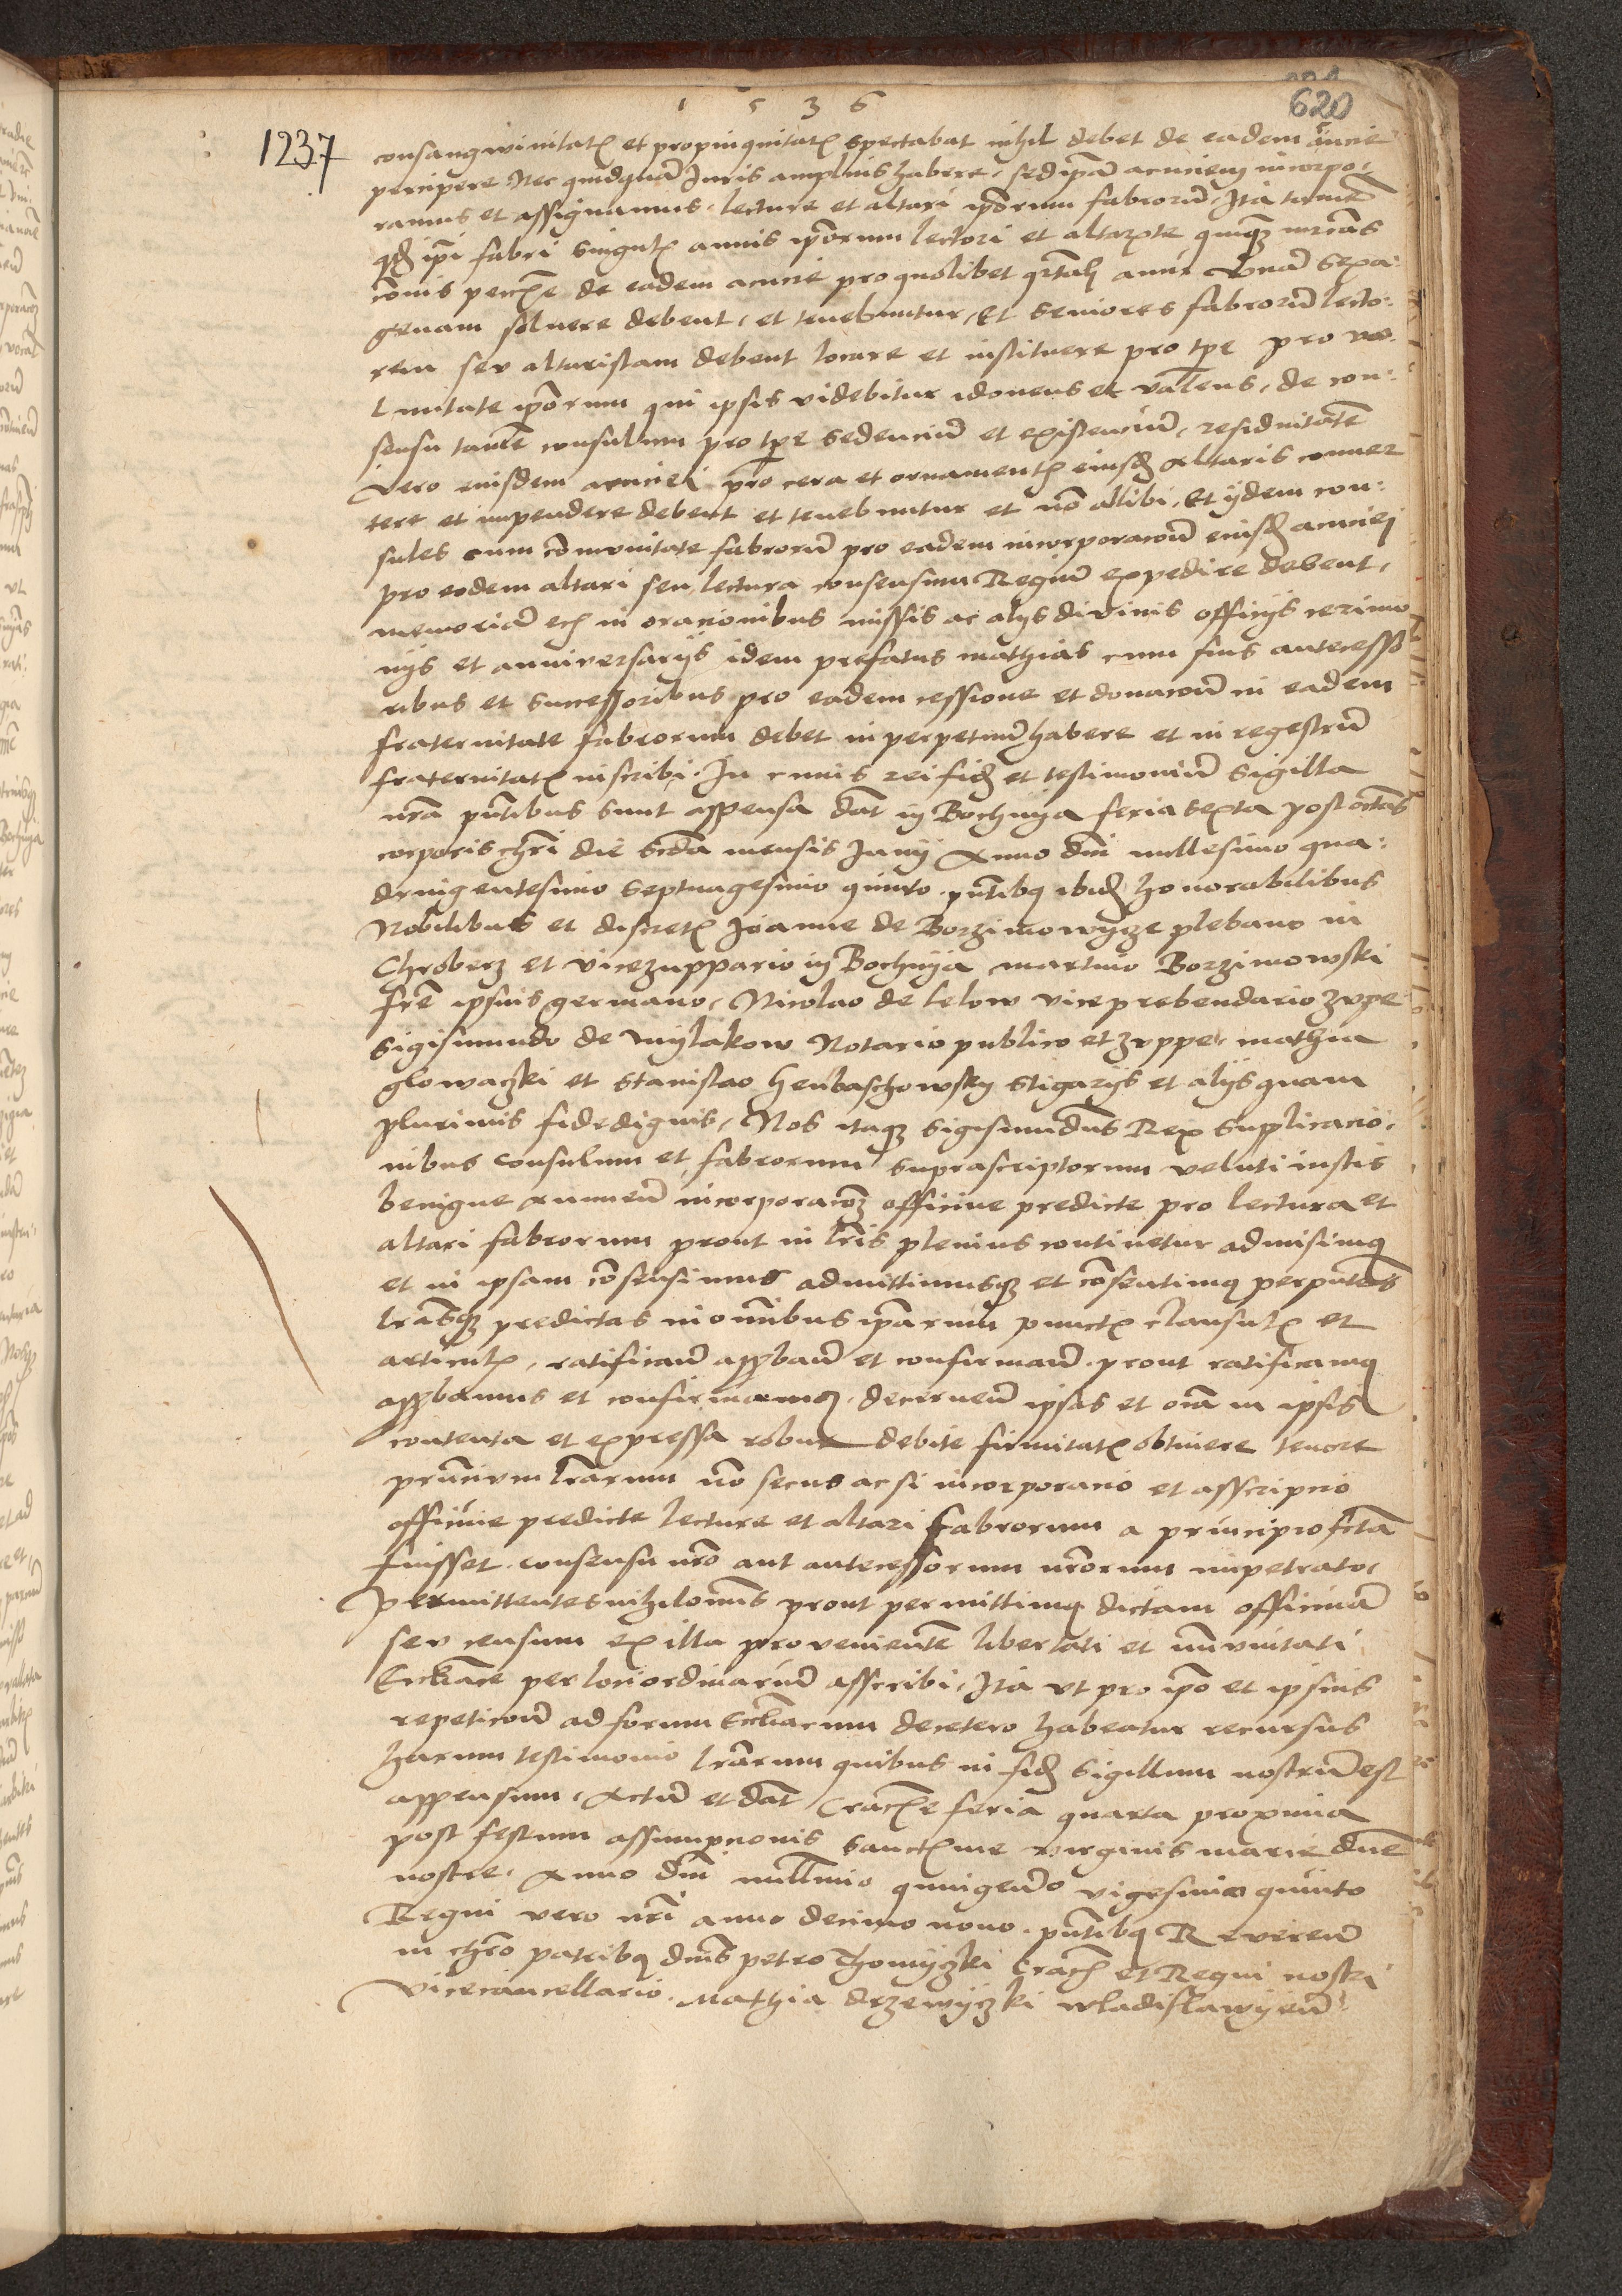 1 5 3 6
620
1237
consangwinitatem et propinquitatem spectabat nihil debet de eadem acucie
percipere Nec quidquam Juris amplius habere, sed ipam acuciem incorpo
ramus et assignamus, lecture et altari ipsorum fabrorum, Ita tamen
qd ipi fabri singulis annis ipsorum lectori et altariste quinque mrcas
comis pecunie de eadem acucie pro quolibet qrtali anni Unam sexa
genam solvere debent, et tenebuntur, Et Seniores fabrorum lecto:
rem seu altaristam debent locare et instituere pro tpe pro vo
luntate ipsorum qui ipsis videbitur idoneus et valens, de con:
sensu tamen consulum pro tpe sedencium et existencium, residuitatem
Vero eiusdem acuciei pro cera et ornamentis eiusd Altaris conver
tere et impendere debent et tenebuntur et non alibi, Et ijdem con:
sules cum comunitate fabrorum pro eadem incorporacione eiusd acuciej
pro eodem altari seu lectura consensum Regium expedire debent,
memoriam ech in oracionibus missis ac alys divinis officijs cerimo
nijs et anniversarijs idem prefatus mathias cum suis antecesso
ribus et Successoribus pro eadem cessione et donacione in eadem
fraternitate fabrorum debet in perpetuum habere et in regestrum
fraternitatis inscribi. In cuius rei fid et testimonium Sigilla
nra pntibus sunt appensa dat in Bochnya feria sexta post octas
corporis chri die scda mensis Junij Anno dni millesimo qua:
dringentesimo Septuagesimo quinto. pntibq ibid honorabilibus
Nobilibus et discretis Joanne de Borzimowycze plebano in
Chroberz et vicezuppario in Bochnya martino Borzimowski
fre ipsius germano, Nicolao de lelow viceprebendario zupe
Sigismundo de mylakow Notario publico et zuppe, mathia
glowaczki et Stanislao henbaschowsky Stigarijs et alijs quam
plurimis fidedignis, Nos itaque Sigismundus Rex Supplicacio:
nibus Consulum et fabrorum suprascriptorum veluti iustis
benigne annuen incorporacoem officine predicte pro lectura et
altari fabrorum prout in lris plenius continetur admisimq
et in ipsam consensimus admittimusque et consentimq per pntes
lrasque predictas in omibus iparum punctis clausulis et
articulis, ratificand approband et confirmand. prout ratificamq
approbamus et confirmamq. decernen ipsas et oia in ipsis
contenta et expressa robur debite firmitatis obtinere tenore
prntium lrarum no secus ac si incorporacio et asscripcio
officine predicte lecture et altari fabrorum a principio fcta
fuisset, consensu nro aut antecessorum nrorum impetrato,
Permittentes nihilominus prout permittimq dictam officinam
seu censum ex illa provenientem libertati et immunitati
Eccliace per loci ordinarium asscribi, Ita ut pro ipo et ipsius
repeticone ad forum Ecclacum decetero habeatur recursus
harum testimonio lrarum quibus in fid Sigillum nostrum est
appensum, Actum et dat Cracovie feria quarta proxima
post festum assumpcionis Sanctissime virginis marie dne
nostre, Anno dni millmo quingento vigesimo quinto
Regni vero nri anno decimo nono. pntibq Reveren
in chro patribq dnis petro Thomyczki Crach et Regni nostri
Vicecancellario. Mathia drzewyczki wladislawyen: